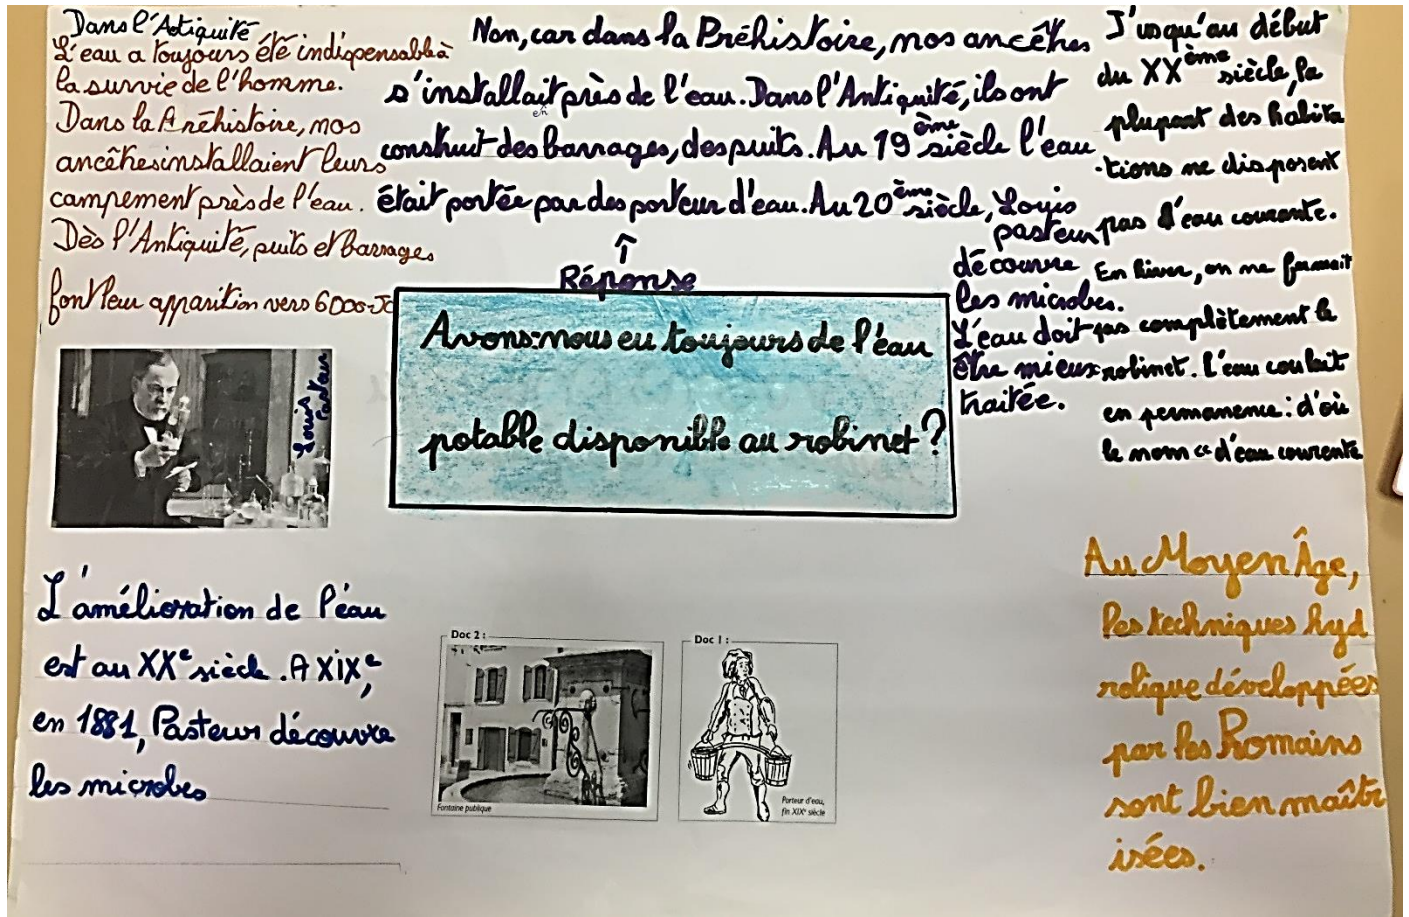 Dans l'Antiquité
L'eau a toujours été indispensable à
la survie de l'homme.
Dans la Préhistoire, nos
ancêtres installaient leurs
campement près de l'eau.
Dès l'Antiquité, puits et barrages
font leur apparition vers 6000-JC
Non, car dans la Préhistoire, nos ancêtres
s'installait près de l'eau. Dans l'Antiquité, ils ont
en
construit des barrages, des puits. Au 19ème siècle l'eau
était portée par des porteur d'eau. Au 20ème siècle, Louis
pasteur
découvre
les microbes.
L'eau doit
être mieux
traitée.
↑
Réponse
Avons-nous eu toujours de l'éau
potable disponible au robinet ?
J'usqu'au début
du XXème siècle, la
plupart des habita
-tions ne disposent
pas d'eau courante.
En hiver, on ne fermait
pas complètement le
robinet. L'eau coulait
en permanence : d'où
le nom "d'eau courente
Louis
Pasteur
L'amélioration de l'éau
est au XXe siècle. A XIXe,
en 1881, Pasteur découvre
les microbes
Doc 2 :
Fontaine publique
Doc 1 :
Porteur d'eau,
fin XIXe siècle
Au Moyen Âge,
les techniques hyd
rolique développées
par les Romains
sont bien maîtr
isées.